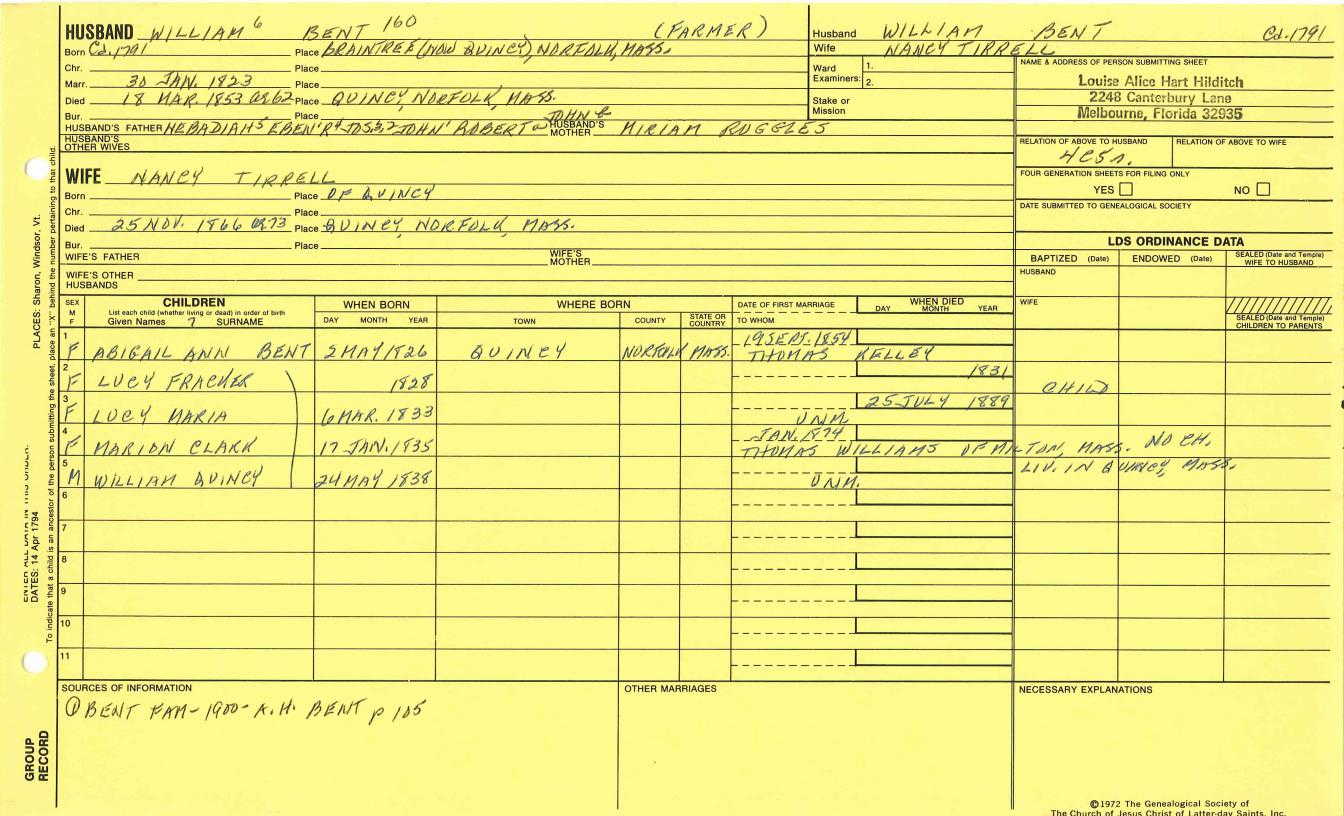 HUSBAND WILLIAM 6 BENT 160 (FARMER)
Born Ca. 1791 Place BRAINTREE (NOW QUINCY), NORFOLK, MASS.
Chr. Place
Marr. 30 JAN. 1823 Place
Died 18 MAR. 1853 OR 62 Place QUINCY, NORFOLK, MASS.
Bur. Place
HUSBAND'S FATHER HEBADIAH5 EBEN'R4 JOS3,2 JOHN1 ROBERT JOHN HUSBAND'S MOTHER MIRIAM RUGGLES
HUSBAND'S OTHER WIVES
Husband WILLIAM BENT Ca. 1791
Wife NANCY TIRRELL
Ward 1.
Examiners: 2.
Stake or Mission
NAME & ADDRESS OF PERSON SUBMITTING SHEET
Louise Alice Hart Hilditch
2248 Canterbury Lane
Melbourne, Florida 32935
RELATION OF ABOVE TO HUSBAND RELATION OF ABOVE TO WIFE
4C5r.
FOUR GENERATION SHEETS FOR FILING ONLY
YES NO
DATE SUBMITTED TO GENEALOGICAL SOCIETY
WIFE NANCY TIRRELL
Born Place OF QUINCY
Chr. Place
Died 25 NOV. 1866 OR 73 Place QUINCY, NORFOLK, MASS.
Bur. Place
WIFE'S FATHER WIFE'S MOTHER
WIFE'S OTHER HUSBANDS
LDS ORDINANCE DATA
BAPTIZED (Date) ENDOWED (Date) SEALED (Date and Temple) WIFE TO HUSBAND
HUSBAND
WIFE
SEALED (Date and Temple) CHILDREN TO PARENTS
SEX M F
CHILDREN
List each child (whether living or dead) in order of birth
Given Names ? SURNAME
WHEN BORN
DAY MONTH YEAR
WHERE BORN
TOWN COUNTY STATE OR COUNTRY
DATE OF FIRST MARRIAGE
TO WHOM
WHEN DIED
DAY MONTH YEAR
1 F ABIGAIL ANN BENT 2 MAY 1826 QUINCY NORFOLK MASS. 19 SEPT. 1854
THOMAS KELLEY
2 F LUCY FRACKER 1828 1831 CHILD
3 F LUCY MARIA 6 MAR. 1833 25 JULY 1889
UNM.
4 F MARION CLARK 17 JAN. 1835 JAN. 1874
THOMAS WILLIAMS OF MILTON, MASS. NO CH.
5 M WILLIAM QUINCY 24 MAY 1838 UNM. LIV. IN QUINCY, MASS.
6
7
8
9
10
11
SOURCES OF INFORMATION
① BENT FAM - 1900 - A.H. BENT p 105
OTHER MARRIAGES
NECESSARY EXPLANATIONS
©1972 The Genealogical Society of
The Church of Jesus Christ of Latter-day Saints, Inc.
GROUP RECORD
ENTER ALL DATA IN THIS ORDER:
DATES: 14 Apr 1794
PLACES: Sharon, Windsor, Vt.
To indicate that a child is an ancestor of the person submitting the sheet, place an "X" behind the number pertaining to that child.